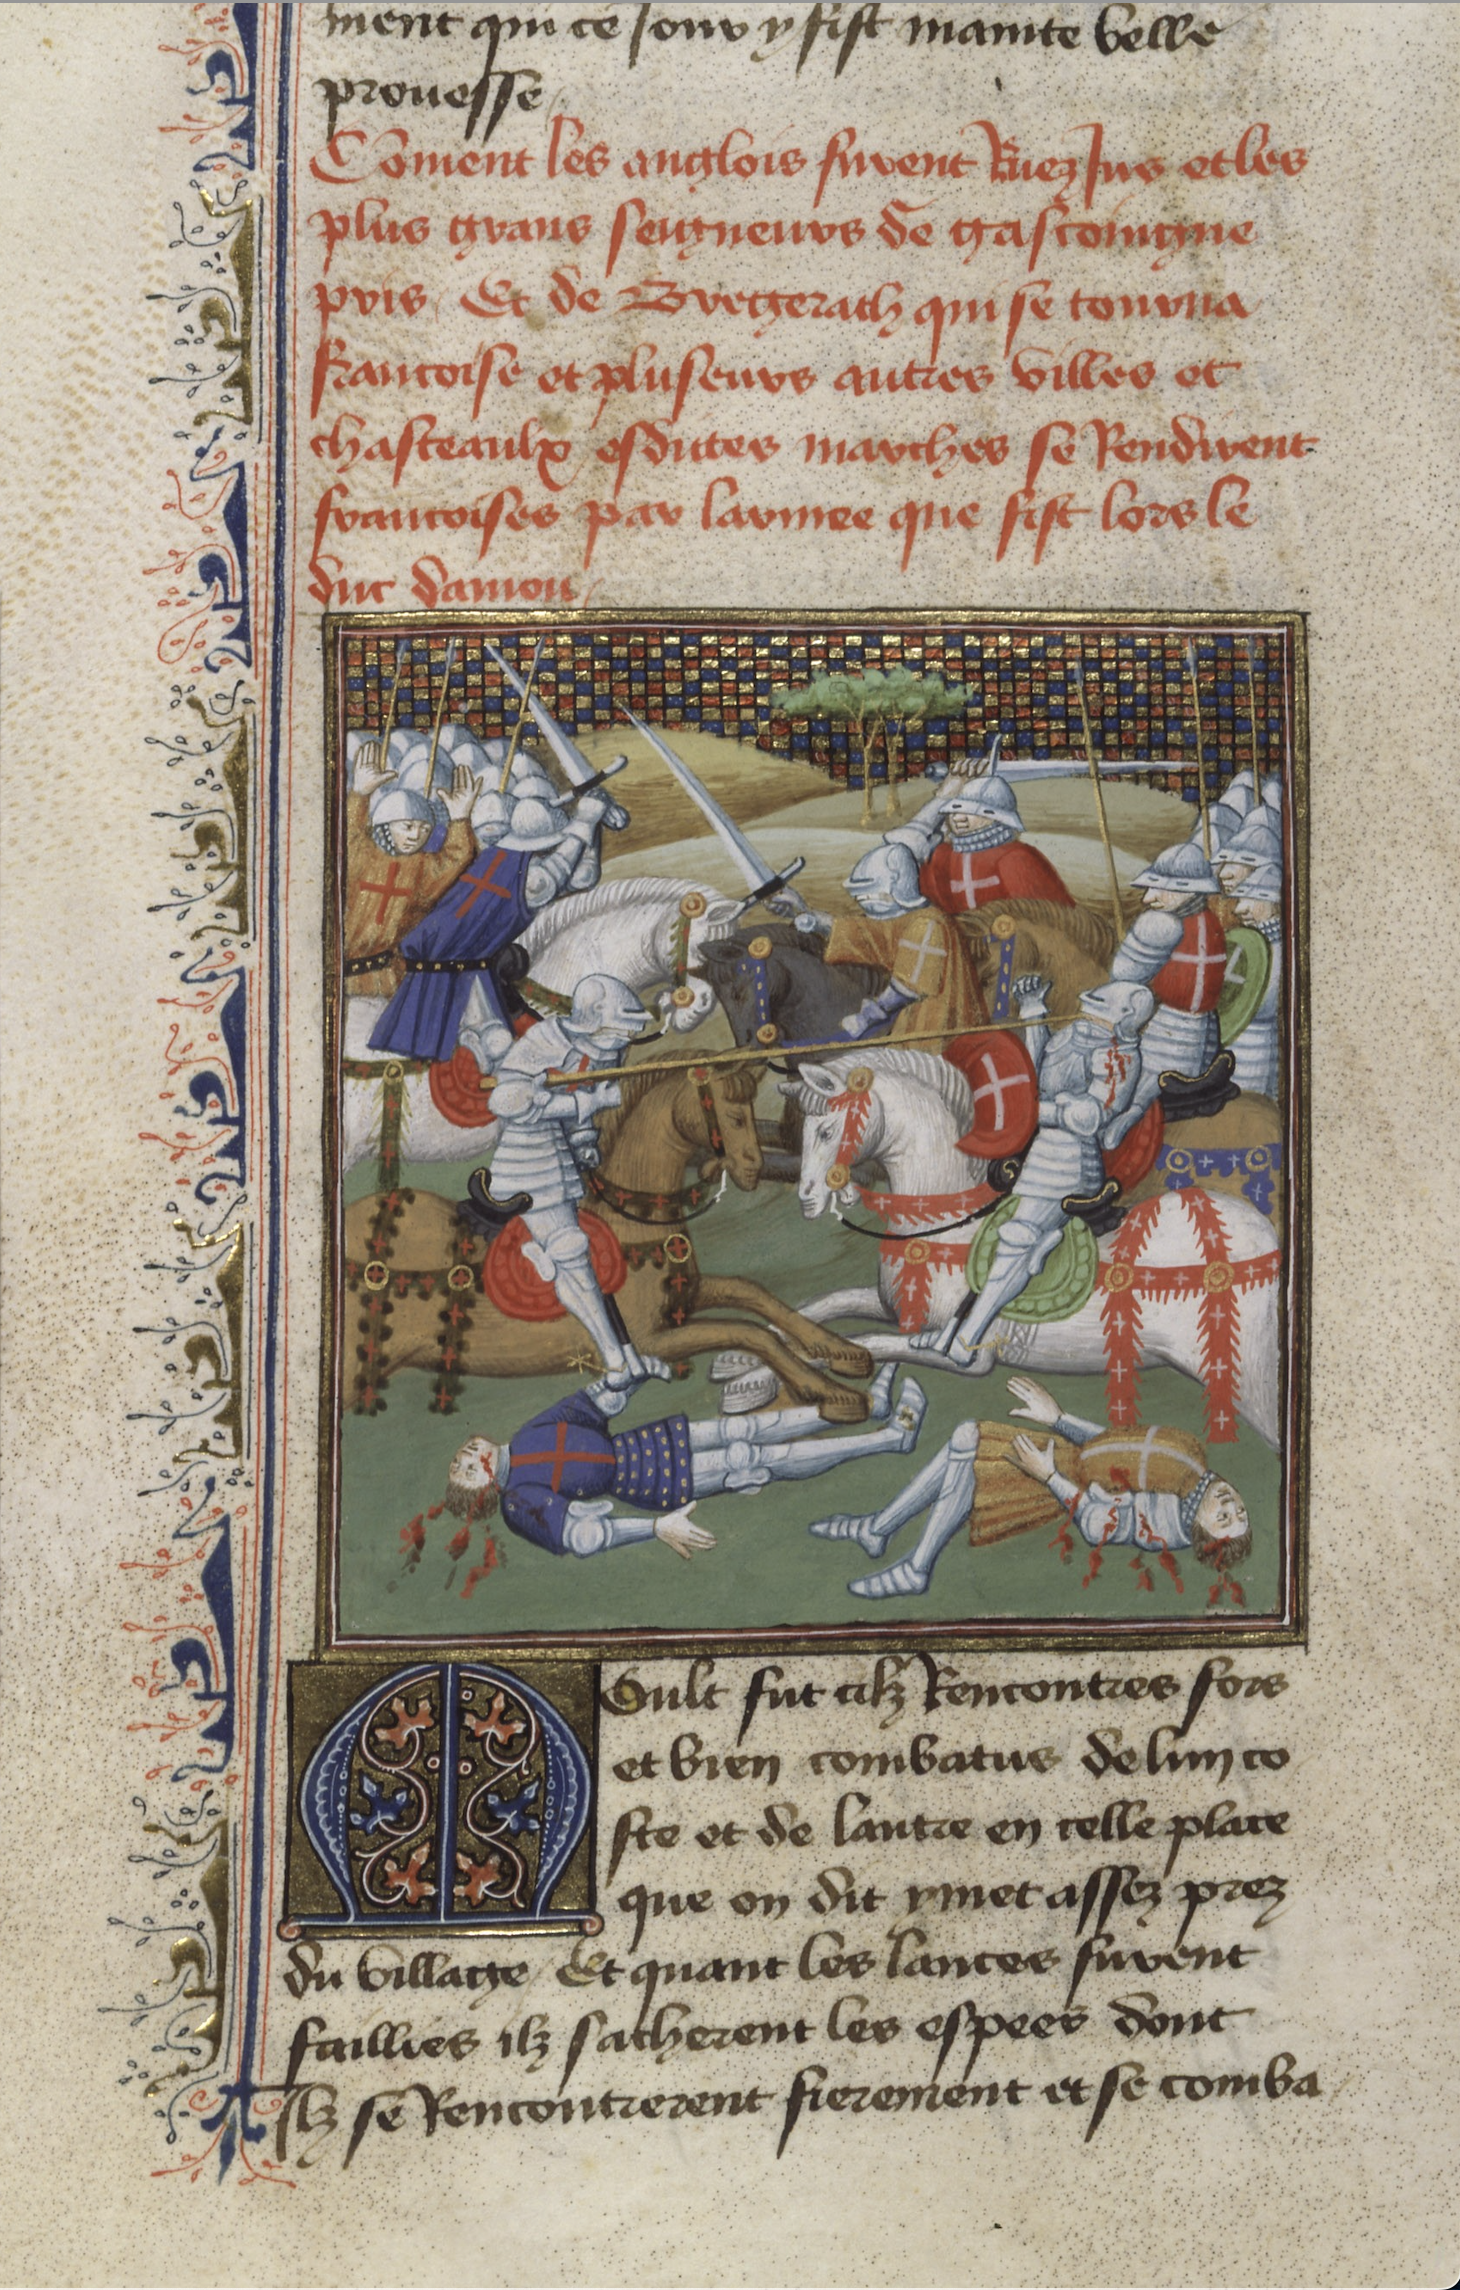 ment qui ce jour y fist mainte belle
prouesse
Coment les anglois furent Ruez jus et les
plus grans seigneurs de gascoingne
pris Et de Bregerach qui se tourna
francoise et pluseurs autres villes et
chasteaulx esdites marches se Rendirent
francoises par larmee que fist lors le
duc danjou
Moult fut cilz Rencontres fors
et bien combatus de lun co
ste et de lautre en celle place
que on dit ymet assez prez
du village Et quant les lances furent
faillies ilz sacherent les espees dont
Ilz se Rencontrerent fierement et se comba